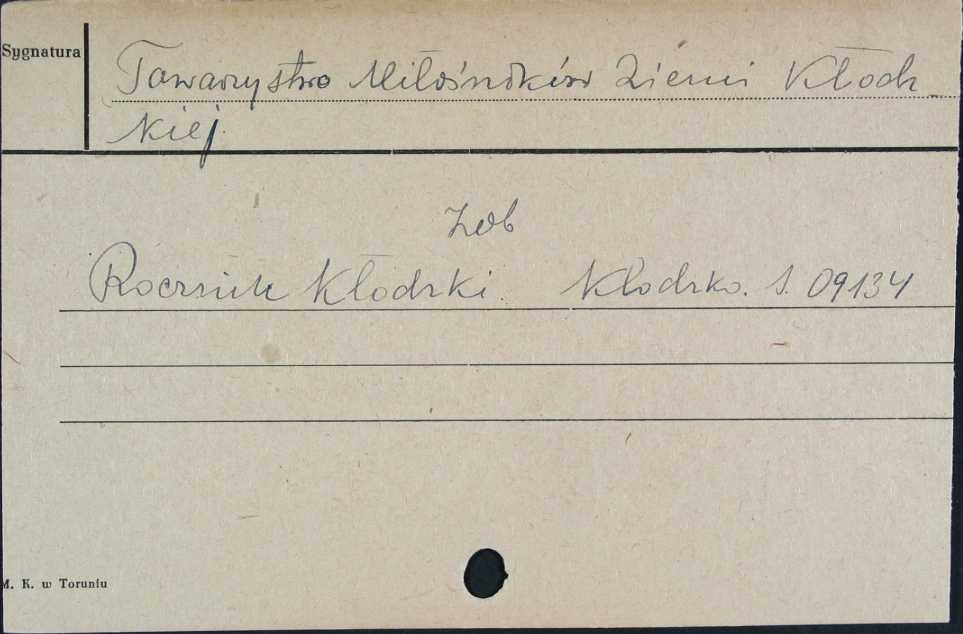 Sygnatura
Towarzystwo Miłośników Ziemi Kłodz-
kiej.
Zob
Rocznik Kłodzki. Kłodzko. S. 09134
M. K. w Toruniu